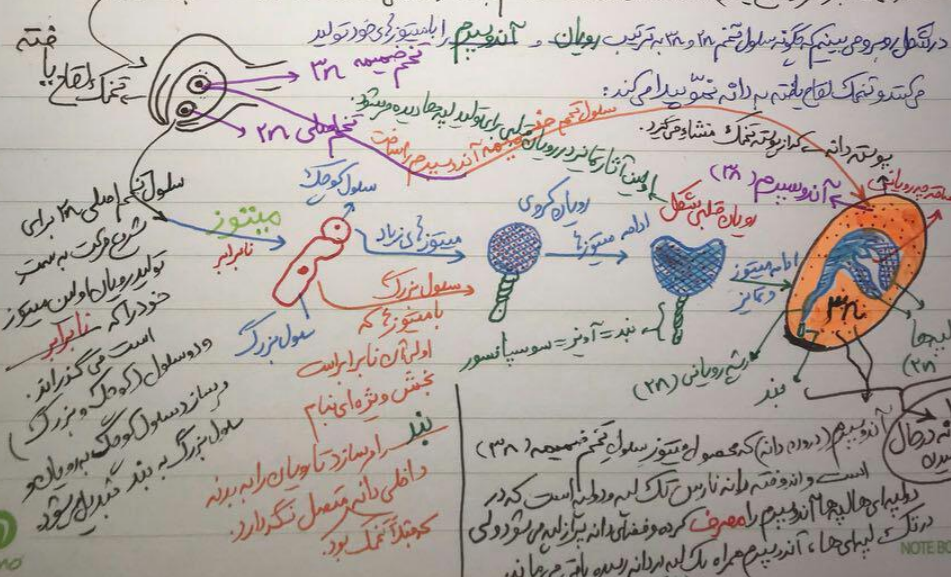 در شکل روبرو می بینیم که چگونه سلول تخم ۲n و ۳n به ترتیب رویان و آندوسپرم را با میتوزهای خود تولید
می کنند و تخمک لقاح یافته به دانه نمو پیدا می کند:
تخمک لقاح یافته
تخم ضمیمه ۳n
تخم اصلی ۲n
سلول تخم ضمیمه آندوسپرم را ساخت
اولین آثار نمایان در رویان قلبی برای تولید لپه ها دیده می شود.
پوسته دانه که از پوسته تخمک منشاء می گیرد.
آندوسپرم (۳n)
ساقه رویانی
سلول تخم اصلی ۲n برای
شروع حرکت به سمت
تولید رویان اولین میتوز
خود را که نابرابر
است می گذراند.
و دو سلول (کوچک و بزرگ)
می سازد سلول کوچک به رویان و
سلول بزرگ به بند تبدیل می شود
میتوز
نابرابر
سلول کوچک
سلول بزرگ
میتوزهای زیاد
سلول بزرگ
با میتوزها که
اولی آن نابرابر است
بخش ویژه ای بنام
بند
را می سازد تا رویان را به بدنه
داخلی دانه متصل نگه دارد.
که قبلا تخمک بود.
رویان کروی
ادامه میتوزها
رویان قلبی شکل
بند = آویز = سوسپانسور
ادامه میتوز
و تمایز
۳n
ریشه رویانی (۲n)
بند
لپه ها
(۲n)
آندوسپرم (درون دانه) که محصول میتوز سلول تخم ضمیمه (۳n)
است و اندوخته دانه نارس تک لپه و دولپه است که در
دولپه ای ها لپه ها آندوسپرم را مصرف کرده و فضای دانه پر از لپه می شود ولی
در تک لپه ای ها، آندوسپرم همراه تک لپه در دانه رسیده باقی می ماند.
NOTE BO